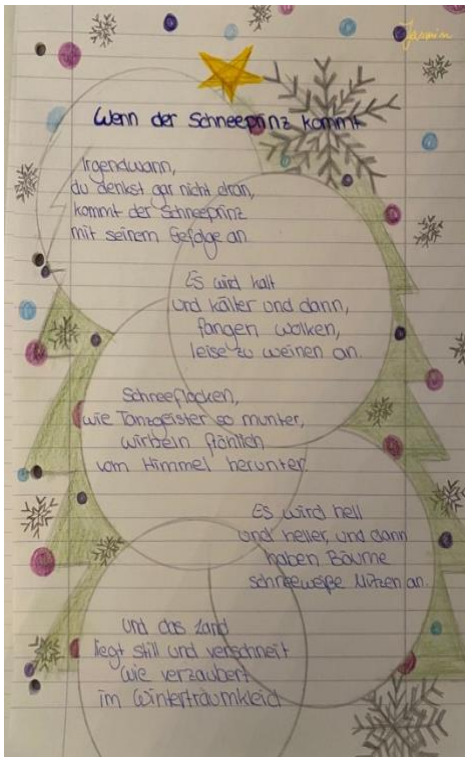 Jasmin
Wenn der Schneeprinz kommt
Irgendwann,
du denkst gar nicht dran,
kommt der Schneeprinz
mit seinem Gefolge an
Es wird kalt
und kälter und dann,
fangen Wolken,
leise zu weinen an.
Schneeflocken,
wie Tanzgeister so munter,
wirbeln fröhlich
vom Himmel herunter.
Es wird hell
und heller, und dann
haben Bäume
schneeweiße Mützen an.
Und das Land
liegt still und verschneit
wie verzaubert
im Winterträumkleid